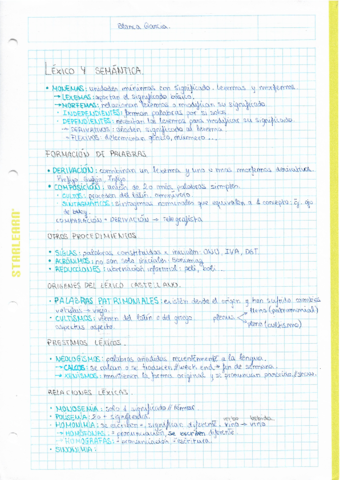 María García
LÉXICO Y SEMÁNTICA
• MONEMAS: unidades mínimas con significado. Lexemas y morfemas.
→ LEXEMAS: aportan el significado básico.
→ MORFEMAS: relacionan lexemas o modifican su significado
- INDEPENDIENTES: forman palabras por sí solos
- DEPENDIENTES: necesitan los lexemas para modificar su significado.
→ DERIVATIVOS: añaden significado al lexema
→ FLEXIVOS: determinan género, número...
FORMACIÓN DE PALABRAS
• DERIVACIÓN: combinan un lexema y uno o más morfemas derivativos
Prefijo, Sufijo, Infijo.
• COMPOSICIÓN: unión de 2 o más palabras simples.
- CULTOS: proceden del latín
- SINTAGMÁTICOS: sintagmas nominales que equivalen a 1 concepto: Ej. ojo
de buey.
COMPOSICIÓN + DERIVACIÓN → Telegrafista
OTROS PROCEDIMIENTOS
• SIGLAS: palabras constituidas x iniciales: ONU, IVA, DGT
• ACRÓNIMOS: no son solo iniciales:
• REDUCCIONES: abreviación informal: peli, boli.
ORÍGENES DEL LÉXICO CASTELLANO.
• PALABRAS PATRIMONIALES: existen desde el origen y han sufrido cambios
→ vieja.
• CULTISMOS: vienen del latín o del griego
aspectus aspecto.
plenus
lleno (patrimonial)
pleno (cultismo)
PRÉSTAMOS LÉXICOS.
• NEOLOGISMOS: palabras añadidas recientemente a la lengua.
→ CALCOS: se calcan o se traducen: Week end → fin de semana
→ XENISMOS: mantienen la forma original y se pronuncian parecido:
RELACIONES LÉXICAS.
• MONOSEMIA: solo 1 significado
• POLISEMIA: 2 o + significados
• HOMONIMIA: se escriben =, significan diferente
→ HOMÓFONAS: = pronunciación, se escriben diferente
→ HOMÓGRAFAS: = pronunciación y escritura
• SINONIMIA:
STABILEARN